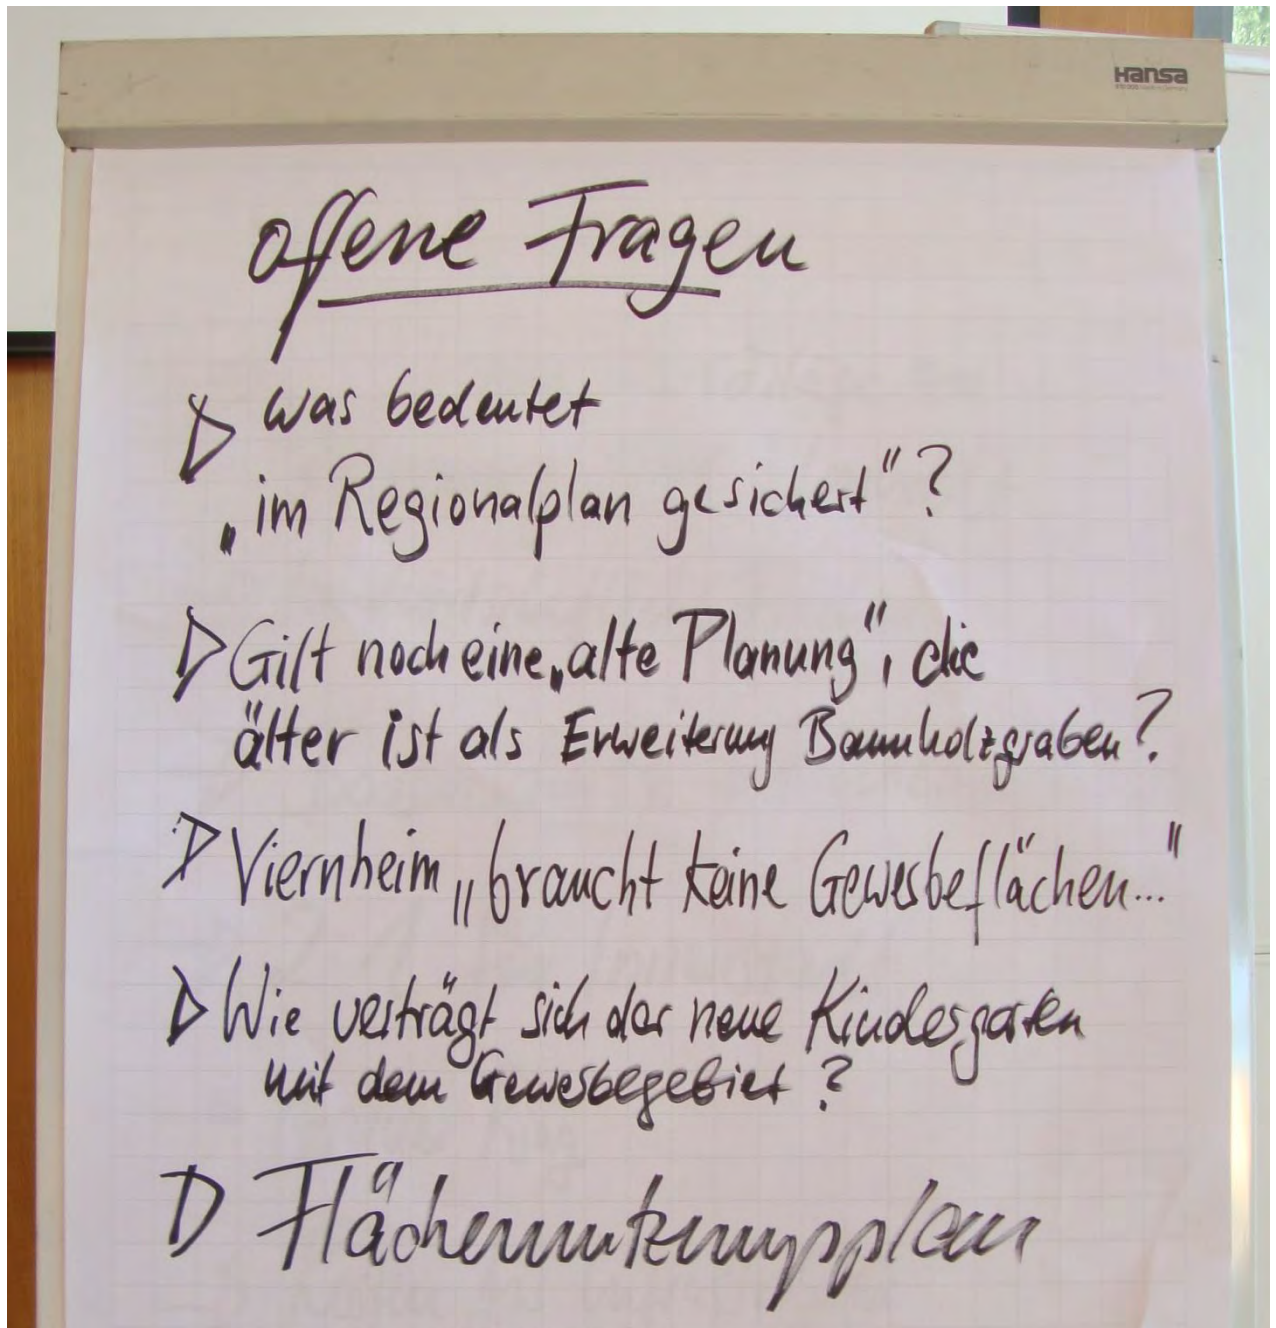 Hansa
offene Fragen
▷ was bedeutet
„im Regionalplan gesichert"?
▷ Gilt noch eine „alte Planung", die
älter ist als Erweiterung Bannholzgraben?
▷ Viernheim „braucht keine Gewerbeflächen..."
▷ Wie verträgt sich der neue Kindergarten
mit dem Gewerbegebiet?
▷ Flächennutzungsplan